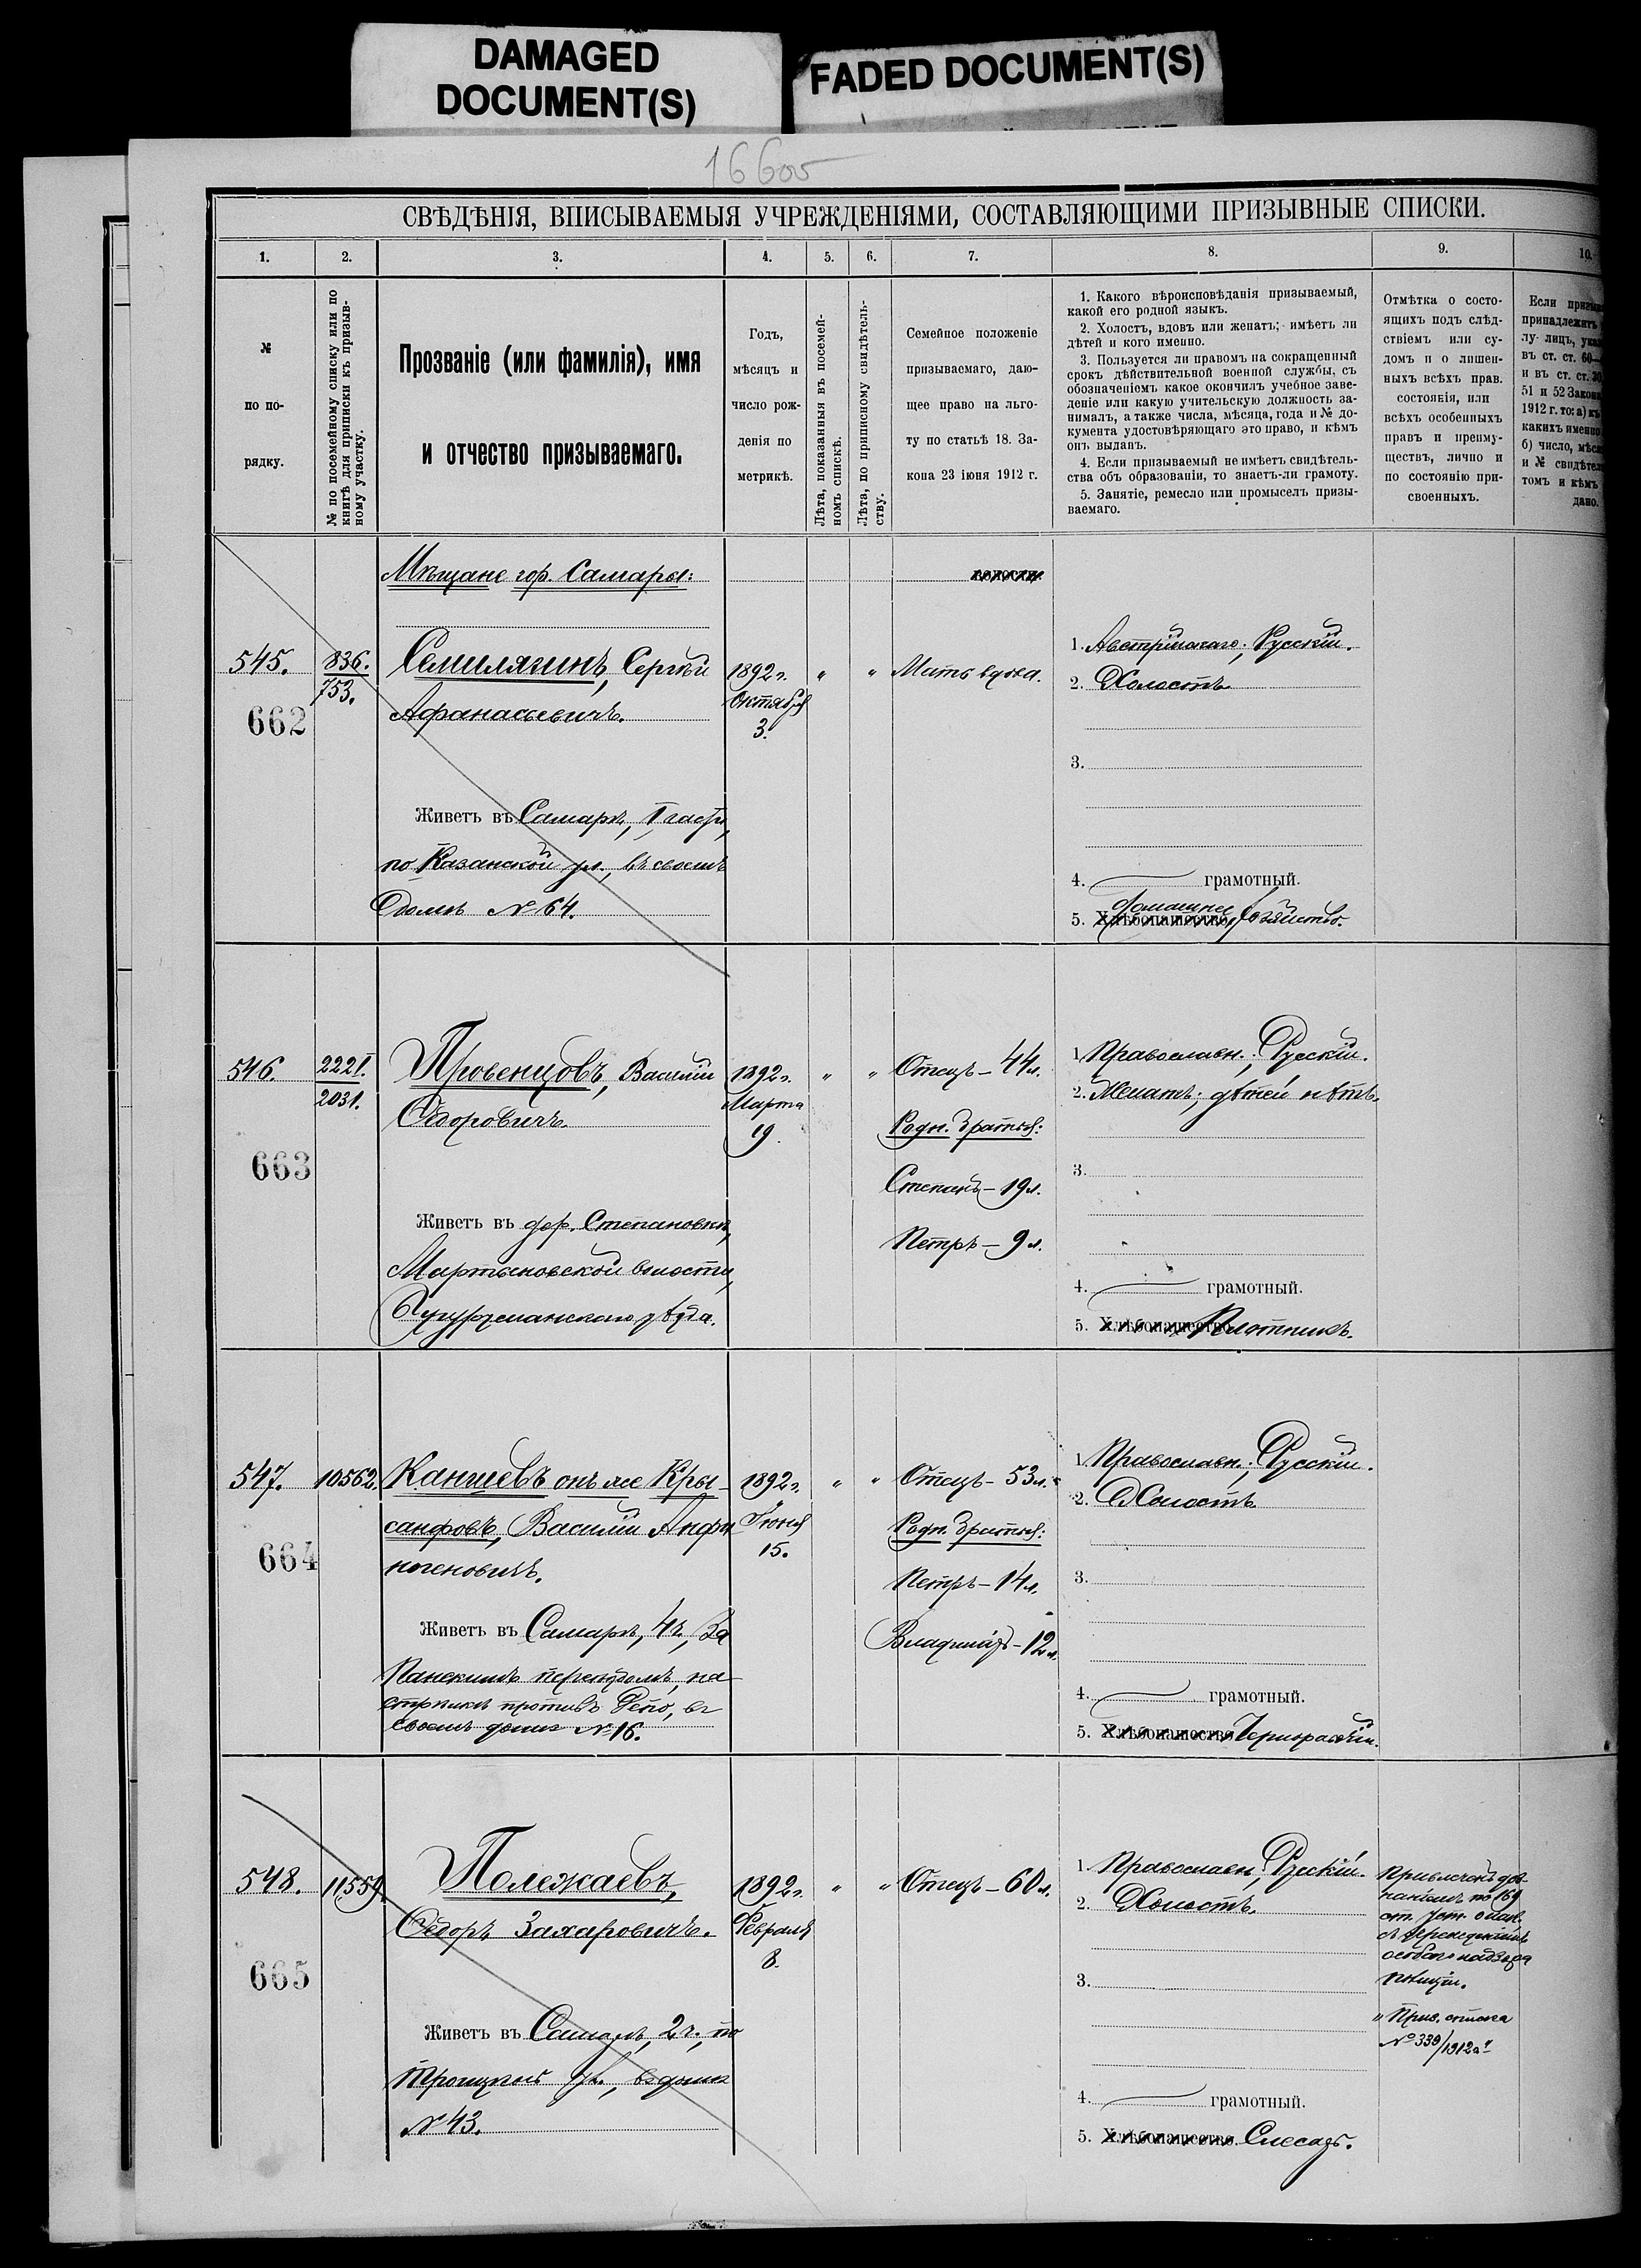 DAMAGED
DOCUMENT(S)
FADED DOCUMENT(S)
16605
СВѢДѢНІЯ, ВПИСЫВАЕМЫЯ УЧРЕЖДЕНІЯМИ, СОСТАВЛЯЮЩИМИ ПРИЗЫВНЫЕ СПИСКИ.
1. 2. 3. 4. 5. 6. 7. 8. 9. 10.
№
по по-
рядку.
№ по посемейному списку или по
книгѣ для приписки къ призыв-
ному участку.
Прозваніе (или фамилія), имя
и отчество призываемаго.
Годъ,
мѣсяцъ и
число рож-
денія по
метрикѣ.
Лѣта, показанныя въ посемей-
номъ спискѣ.
Лѣта, по приписному свидѣтель-
ству.
Семейное положеніе
призываемаго, даю-
щее право на льго-
ту по статьѣ 18. За-
кона 23 іюня 1912 г.
1. Какого вѣроисповѣданія призываемый,
какой его родной языкъ.
2. Холостъ, вдовъ или женатъ; имѣетъ ли
дѣтей и кого именно.
3. Пользуется ли правомъ на сокращенный
срокъ дѣйствительной военной службы, съ
обозначеніемъ какое окончилъ учебное заве-
деніе или какую учительскую должность за-
нималъ, а также числа, мѣсяца, года и № до-
кумента удостовѣряющаго это право, и кѣмъ
онъ выданъ.
4. Если призываемый не имѣетъ свидѣтель-
ства объ образованіи, то знаетъ-ли грамоту.
5. Занятіе, ремесло или промыселъ призы-
ваемаго.
Отмѣтка о состо-
ящихъ подъ слѣд-
ствіемъ или су-
домъ и о лишен-
ныхъ всѣхъ прав.
состоянія, или
всѣхъ особенныхъ
правъ и преиму-
ществъ, лично и
по состоянію при-
своенныхъ.
Если
принадлежитъ
лу лицъ,
въ ст. ст. 60—
и въ ст. ст.
51 и 52 Закона
1912 г. то: а) къ
какихъ именно
б) число,
и №
томъ и кѣмъ
дано.
Мѣщане гор. Самары:
волости.
545.
836.
753.
662
Семилягинъ, Сергѣй
Афанасьевичъ.
1892 г.
Октября
3.
" "
Мать вдова.
1. Русскій.
2. Холостъ.
3.
4. грамотный.
5. Хлѣбопашество Домашнее хозяйство.
Живетъ въ Самарѣ, 1 части,
по Казанской ул., въ своемъ
домѣ № 64.
546.
2221.
2031.
663
Провенцовъ, Василій
Ѳедоровичъ.
1892 г.
Марта
19.
" "
Отецъ - 44 л.
Родн. братья:
Степанъ - 19 л.
Петръ - 9 л.
1. Православн.; Русскій.
2. Женатъ; дѣтей нѣтъ.
3.
4. грамотный.
5. Хлѣбопашество Плотникъ.
Живетъ въ дер. Степановкѣ,
Мартыновской волости,
Бугурусланскаго уѣзда.
547.
10562.
664
Каншевъ онъ же Кры-
санфовъ, Василій Анфи
ногеновичъ.
1892 г.
Іюня
15.
" "
Отецъ - 53 л.
Родн. братья:
Петръ - 14 л.
Владиміръ - 12 л.
1. Православн.; Русскій.
2. Холостъ
3.
4. грамотный.
5. Хлѣбопашество Чернорабочій.
Живетъ въ Самарѣ, 4 ч., За
Панскимъ переѣздомъ, на
противъ Депо, въ
своемъ домѣ № 16.
548.
11559.
665
Полежаевъ,
Ѳедоръ Захаровичъ.
1892 г.
Февраля
8.
" "
Отецъ - 60 л.
1. Православн.; Русскій.
2. Холостъ.
3.
4. грамотный.
5. Хлѣбопашество. Слесарь.
Привлеченъ доз-
наніемъ по 169
ст. Уст. о наказ.
съ учрежденіемъ
особаго надзора
полиціи.
" Прив. отмѣтка
№ 339/1912 г.
Живетъ въ Самарѣ, 2 ч., по
Троицкой ул., въ домѣ
№ 43.